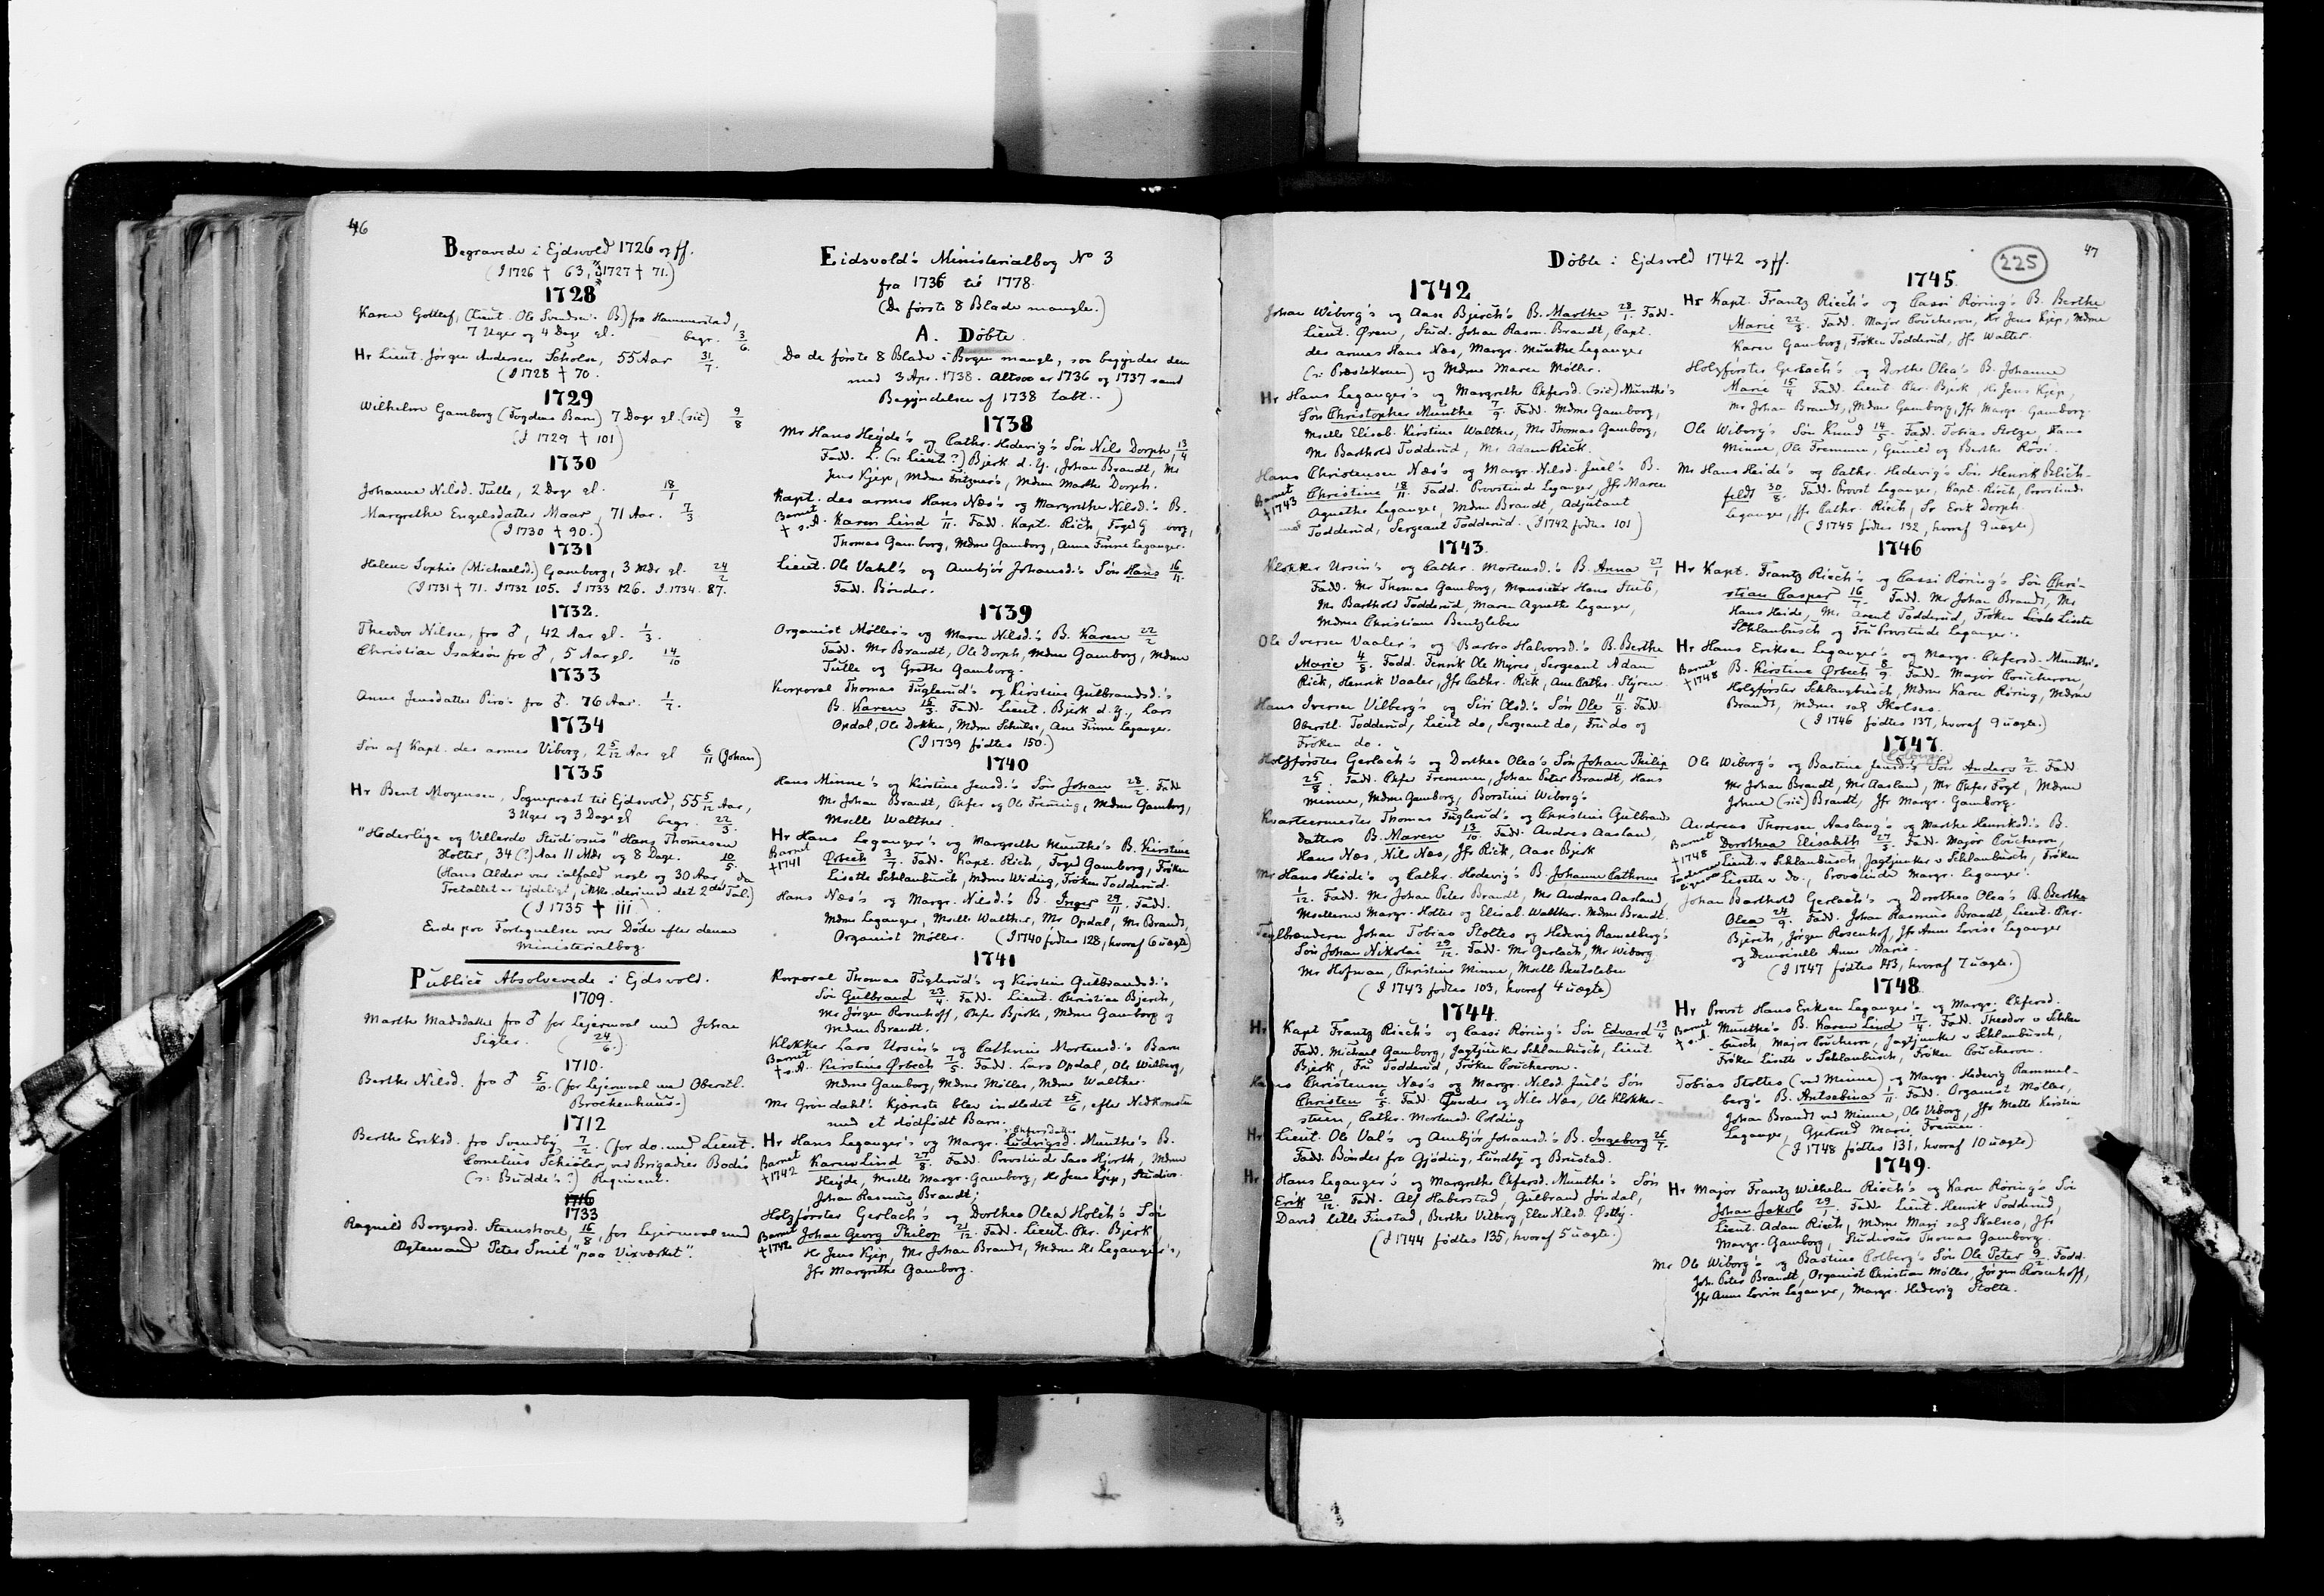 46
Begravede i Ejdsvold 1726 og ff.
(I 1726 † 63, I 1727 † 71.)
1728
Karen Gottlef, (Lieut. Ole Svendsen's B.) fra Hammerstad,
7 Uger og 4 Dage gl. begr. 3/6.
Hr Lieut. Jörgen Andersen Scholse, 55 Aar 31/7.
(I 1728 † 70.
1729
Wilhelm Gamborg (Fogdens Barn) 7 Dage gl. (sic) 9/8
(I 1729 † 101)
1730
Johanne Nilsd. Tulle, 2 Dage gl. 18/1
Margrethe Engelsdatter Maar, 71 Aar. 7/3
(I 1730 † 90.)
1731
Helene Sophie (Michaelsd.) Gamborg, 3 Mdr gl. 24/2
(I 1731 † 71. I 1732 105. I 1733 126. I 1734. 87.
1732.
Theodor Nilsen, fra ♂, 42 Aar gl. 1/3.
Christian Isaksön fra ♂, 5 Aar gl. 14/10
1733
Anne Jensdatter Piro's fra ♂. 76 Aar. 1/2.
1734
Søn af Kapt. des armes Viborg, 2 5/12 Aar gl 6/11 (Johan)
1735
Hr Bent Mogensen, Sognepræst til Ejdsvold, 55 5/12 Aar,
3 Uger og 3 Dage gl begr. 22/3.
"Hæderlige og Vellærde Studiosus" Hans Thomesen
Holter, 34 (?) Aar 11 Mdr og 8 Dage. 10/5.
(Hans Alder var ialfald nogle og 30 Aar, da
Tretallet er tydeligt, ikke derimod det 2det Tal.)
(I 1735 † 111)
Ende paa Fortegnelsen over Døde efter denne
Ministerialbog.
Publice Absolverede i Ejdsvold.
1709.
Marthe Madsdatter fra ♂ for Lejermaal med Johan
Sigler. (24/6.)
1710.
Berthe Nilsd. fra ♂ 5/10. (for Lejermaal med Oberstl.
Brockenhuus.)
1712
Berthe Eriksd. fra Svendby 7/2. (for do. med Lieut.
Cornelius Schiøler, ved Brigadier Bodis
(ɔ: Budde's?) Regiment.
1716
1733
Ragnild Borgersd. Steensrod, 16/8, for Lejermaal med
Ægtemand Peter Smit "paa Vixværket".
Eidsvold's Ministerialbog No 3
fra 1736 til 1778.
(De første 8 Blade mangle.)
A. Döbte.
Da de første 8 Blade i Bogen mangle, saa begynder den
med 3 Apr. 1738. Altsaa er 1736 og 1737 samt
Begyndelsen af 1738 tabt..)
1738
Mr Hans Heyde's og Cathr. Hedevig's Søn Nils Dorph, 13/4
Fadd. L. (ɔ: Lieut?) Bjerk d. Y., Johan Brandt, Mr
Jens Kjep, Mdme Fritzner's, Mdme Marthe Dorph.
Kapt. des armes Hans Næs's og Margrethe Nilsd.'s B.
Barnet † s.A. Karen Lind 1/11. Fadd. Kapt. Rich, Foged G borg,
Thomas Gamborg, Mdme Gamborg, Anne Finne Leganger.
Lieut. Ole Vahl's og Ambjör Johansd.'s Søn Hans 16/11.
Fadd. Bønder.
1739
Organist Møller's og Maren Nilsd.'s B. Karen 22/2
Fadd. Mr Brandt, Ole Dorph, Mdme Gamborg, Mdme
Tulle og Grethe Gamborg.
Korporal Thomas Fuglerud's og Kirstine Gulbrandsd.'s
B. Karen 15/3. Fadd. Lieut. Bjerk d. Y., Lars
Opdal, Ole Dokken, Mdme Schulse, Ane Finne Leganger.
(I 1739 fødtes 150.)
1740
Hans Minne's og Kirstine Jensd.'s Søn Johan 28/2. Fadd
Mr Johan Brandt, Chfer og Ole Freming, Mdme Gamborg,
Mselle Walther.
Hr Hans Leganger's og Margrethe Munthe's B. Kirstine
Barnet †1741 Ørbech 3/7. Fadd. Kapt. Rich, Foged Gamborg, Frøken
Lisette Schlanbusch, Mdme Widing, Frøken Todderud.
Hans Næs's og Margr. Nilsd.'s B. Inger 29/11. Fadd.
Mdme Leganger, Mselle Walther, Mr Opdal, Mr Brandt,
Organist Møller. (I 1740 fødtes 128, hvoraf 6 uægte)
1741
Korporal Thomas Fuglerud's og Kirstine Gulbrandsd.'s
Søn Gulbrand 23/4. Fadd. Lieut. Christian Bjerch,
Mr Jörgen Rosenhoff, Chfer Bjerke, Mdme Gamborg og
Mdme Brandt.
Klokker Lars Ursin's og Cathrine Mortensd.'s Barn
Barnet † s.A. Kirstine Ørbech 7/5. Fadd. Lars Opdal, Ole Wilberg,
Mdme Gamborg, Mdme Möller, Mdme Walther.
Mr Gröndahl's Kjæreste blev indledet 25/6, efter Nedkomsten
med et dödfödt Barn.
Chfersdatter
Hr Hans Leganger's og Margr. Ludvigsd. Munthe's B.
Barnet †1742 Karen Lind 27/8. Fadd. Provstinde Sara Hjorth, Mdme
Heyde, Mselle Margr. Gamborg, Hr Jens Kjep, Studios.
Johan Rasmus Brandt.
Holzförster Gerlach's og Dorthea Olea Holch's Søn
Barnet †1742 Johan Georg Philop 21/12. Fadd. Lieut. Chr. Bjerk
Hr Jens Kjep, Mr Johan Brandt, Mdme Hr Leganger's,
Jfr Margrethe Gamborg.
Döbte i Ejdsvold 1742 og ff.
225
47
1742
Johan Wiborg's og Aase Bjerch's B. Marthe 28/1. Fadd.
Lieut. Øren, Stud. Johan Rasm. Brandt, Capt.
des armes Hans Næs, Margr. Munthe Leganger
(ɔ: Præstekonen) og Mdme Maren Møller.
Hr Hans Leganger's og Margrethe Chfersd. (sic) Munthe's
Søn Christopher Munthe 7/9. Fadd. Mdme Gamborg,
Mselle Elisab. Kirstine Walther, Mr Thomas Gamborg,
Mr Barthold Todderud, Mr Adam Rick.
Hans Christensen Næs's og Margr. Nilsd. Juel's B.
Barnet †1743 Christine 18/11. Fadd. Provstinde Leganger, Jfr Maren
Agnethe Leganger, Mdme Brandt, Adjutant
Todderud, Sergeant Todderud. (I 1742 fødtes 101)
1743.
Klokker Ursin's og Cathr. Mortensd.'s B. Anna 27/1
Fadd. Mr Thomas Gamborg, Monsieur Hans Stub,
Mr Barthold Todderud, Maren Agnethe Leganger,
Mdme Christiane Bentzleben
Ole Iversen Vaaler's og Barbra Halvorsd.'s B. Berthe
Marie 4/8. Fadd. Fenrik Ole Myren, Sergeant Adam
Rick, Henrik Vaaler, Jfr Cathr. Rick, Ane Cathr. Styren.
Hans Iversen Vilberg's og Siri Olsd.'s Søn Ole 11/8. Fadd.
Oberstl. Todderud, Lieut do, Sergeant do, Fru do og
Frøken do.
Holzførster Gerlach's og Dorthea Olea's Søn Johan Philip
25/8. Fadd. Chfer Fremmen, Johan Peter Brandt, Hans
Minne, Mdme Gamborg, Borstini Wiborg's
Kvarteermester Thomas Fuglerud's og Christine Gulbrands
datters B. Maren 13/10. Fadd. Andres Aasland,
Hans Næs, Nils Næs, Jfr Rick, Aase Bjerk
Mr Hans Heide's og Cathr. Hedevig's B. Johanne Cathrine
1/12. Fadd. Mr Johan Peter Brandt, Mr Andreas Aasland,
Msellerne Margr. Holter og Elisab. Walther. Mdme Brandt.
Teglbrænderen Johan Tobias Stoltes og Hedevig Ramelberg's
Søn Johan Nikolai 29/12. Fadd. Mr Gerlach, Mr Wiborg
Mr Hofman, Christine Minne, Mselle Bentzleben
(I 1743 fødtes 103, hvoraf 4 uægte)
1744.
Hr Kapt Frantz Riech's og Cassi Röring's Søn Edvard 13/4
Fadd. Michael Gamborg, Jagtjunker Schlanbusch, Lieut
Bjerk, Fru Todderud, Frøken Coucheron.
Hans Christensen Næs's og Margr. Nilsd. Juel's Søn
Christen 6/5. Fadd. Gunder og Nils Næs, Ole Klokker-
steen, Cathr. Mortensd. Colding
Hr Lieut. Ole Val's og Ambjör Johansd.'s B. Ingeborg 26/7.
Fadd. Bönder fra Gjöding, Lundby og Brustad.
Hr Hans Leganger's og Margrethe Chfersd. Munthe's Søn
Erik 20/12. Fadd. Alf Haberstad, Gulbrand Jöndal,
David Lille Finstad, Berthe Vilberg, Elen Nilsd. Østby.
(I 1744 fødtes 135, hvoraf 5 uægte.)
1745.
Hr Kapt. Frantz Riech's og Cassi Röring's B. Berthe
Marie 22/3. Fadd. Major Coucheron, Hr Jens Kjep, Mdme
Karen Gamborg, Frøken Todderud, Jfr Walter.
Holzförster Gerlach's og Dorthe Olea's B. Johanne
Marie 15/4 Fadd. Lieut Chr. Bjerk, Hr Jens Kjep,
Mr Johan Brandt, Mdme Gamborg, Jfr Margr. Gamborg.
Ole Wiborg's Søn Knud 14/5. Fadd. Tobias Stolze, Hans
Minne, Ole Fremmen, Gunild og Berthe Rösi.
Mr Hans Heide's og Cathr. Hedevig's Søn Henrik Blich-
feldt 30/8. Fadd. Provst Leganger, Capt. Riech, Provstinde
Leganger, Jfr Cathr. Riech, Sr Erik Dorph.
(I 1745 fødtes 132, hvoraf 9 uægte)
1746
Hr Kapt. Frantz Riech's og Cassi Röring's Søn Chri-
stian Casper 16/7. Fadd. Mr Johan Brandt, Mr
Hans Heide, Mr Arent Todderud, Frøken Lisette
Schlanbusch og Fru Provstinde Leganger.
Hr Hans Eriksen Leganger's og Margr. Chfersd. Munthe's
Barnet †1748 B. Kirstine Ørbech 8/9. Fadd. Major Coucheron,
Holzförster Schlangbusch, Mdme Karen Röring, Mdme
Brandt, Mdme sal Skolses.
(I 1746 fødtes 137, hvoraf 9 uægte.)
1747.
Ole Wiborg's og Bastine Jensd.'s Søn Anders 2/2. Fadd
Mr Johan Brandt, Mr Aasland, Mr Chfer Fogt, Mdme
Johne (sic) Brandt, Jfr Margr. Gamborg.
Andreas Thoresen Aaslang's og Marthe Henriksd.'s B.
Barnet †1748 Dorothea Elisabeth 27/3. Fadd. Major Coucheron,
Lieut. v Schlanbusch, Jagtjunker v Schlanbusch, Frøken
Lisette v do., Provstinde Margr. Leganger.
Johan Barthold Gerlach's og Dorothea Olea's B. Berthe
Olea 24/9. Fadd. Johan Rasmus Brandt, Lieut. Chr.
Bjerch, Jörgen Rosenhof, Jfr Anne Lovise Leganger
og Demoiselle Anne Marie.
(I 1747 fødtes 143, hvoraf 7 uægte.)
1748.
Hr Provst Hans Eriksen Leganger's og Margr. Chfersd.
Barnet † s.A Munthe's B. Karen Lind 17/4. Fad. Theodor v Schlan
busch, Major Coucheron, Jagtjunker v Schlanbusch,
Frøken Lisette v Schlanbusch, Frøken Coucheron.
Tobias Stoltes (ved Minne) og Margr. Hedevig Rammel-
berg's B. Antsebina 1/11. Fadd. Organist Møller,
Johan Brandt ved Minne, Ole Viborg, Jfr Mette Kirstine
Leganger, Gjertrud Marie Fremen.
(I 1748 fødtes 131, hvoraf 10 uægte)
1749.
Hr Major Frantz Wilhelm Riech's og Karen Röring's Søn
Johan Jakob 29/1. Fadd. Lieut. Henrik Todderud,
Lieut. Adam Riech, Mdme Mari sal Skolses, Jfr
Margr. Gamborg, Studiosus Thomas Gamborg.
Mr Ole Wiborg's og Bastine Colberg's Søn Ole Peter 9/2. Fadd.
Joh. Peter Brandt, Organist Christian Möller, Jörgen Rosenhoff,
Jfr Anne Lovise Leganger, Margr. Hedevig Stolte.